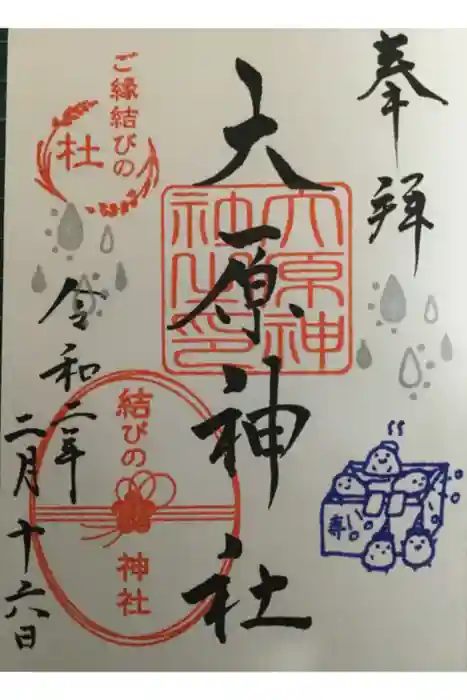 奉拝
大原神社
大原神社之印
ご縁結びの
杜
令和二年
二月十六日
結びの
神社